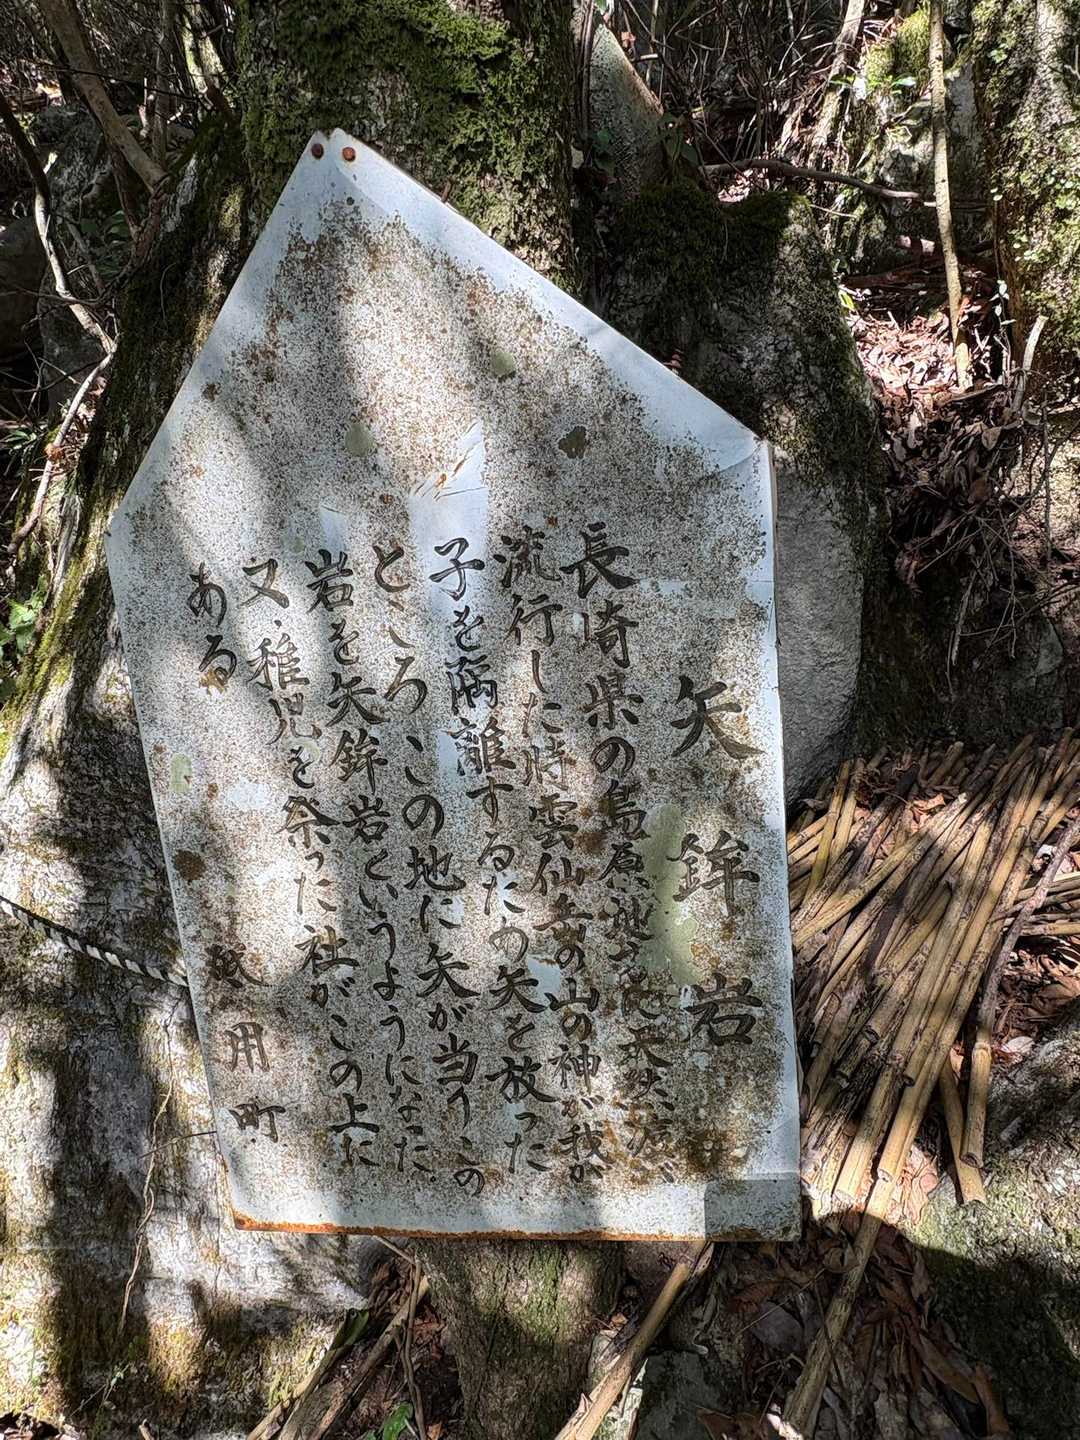 矢鉾岩
長崎県の島原地方に天然痘が
流行した時雲仙岳の山の神が我が
子を隔離するための矢を放った
ところ、この地に矢が当りこの
岩を矢鉾岩というようになった
又、稚児を祭った社がこの上に
ある
砥用町